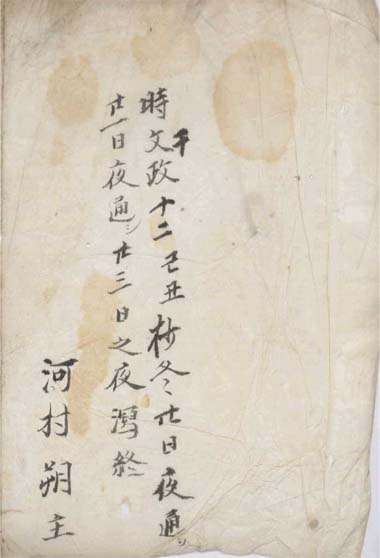 時干文政十二己丑杪冬、廿日夜通シ
廿一日夜通シ廿三日之夜寫終
河村朔主